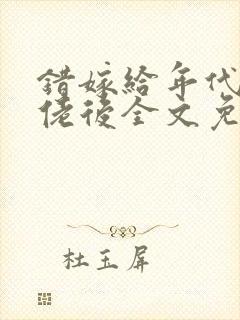 错嫁给年代
佬后全文免
杜玉屏